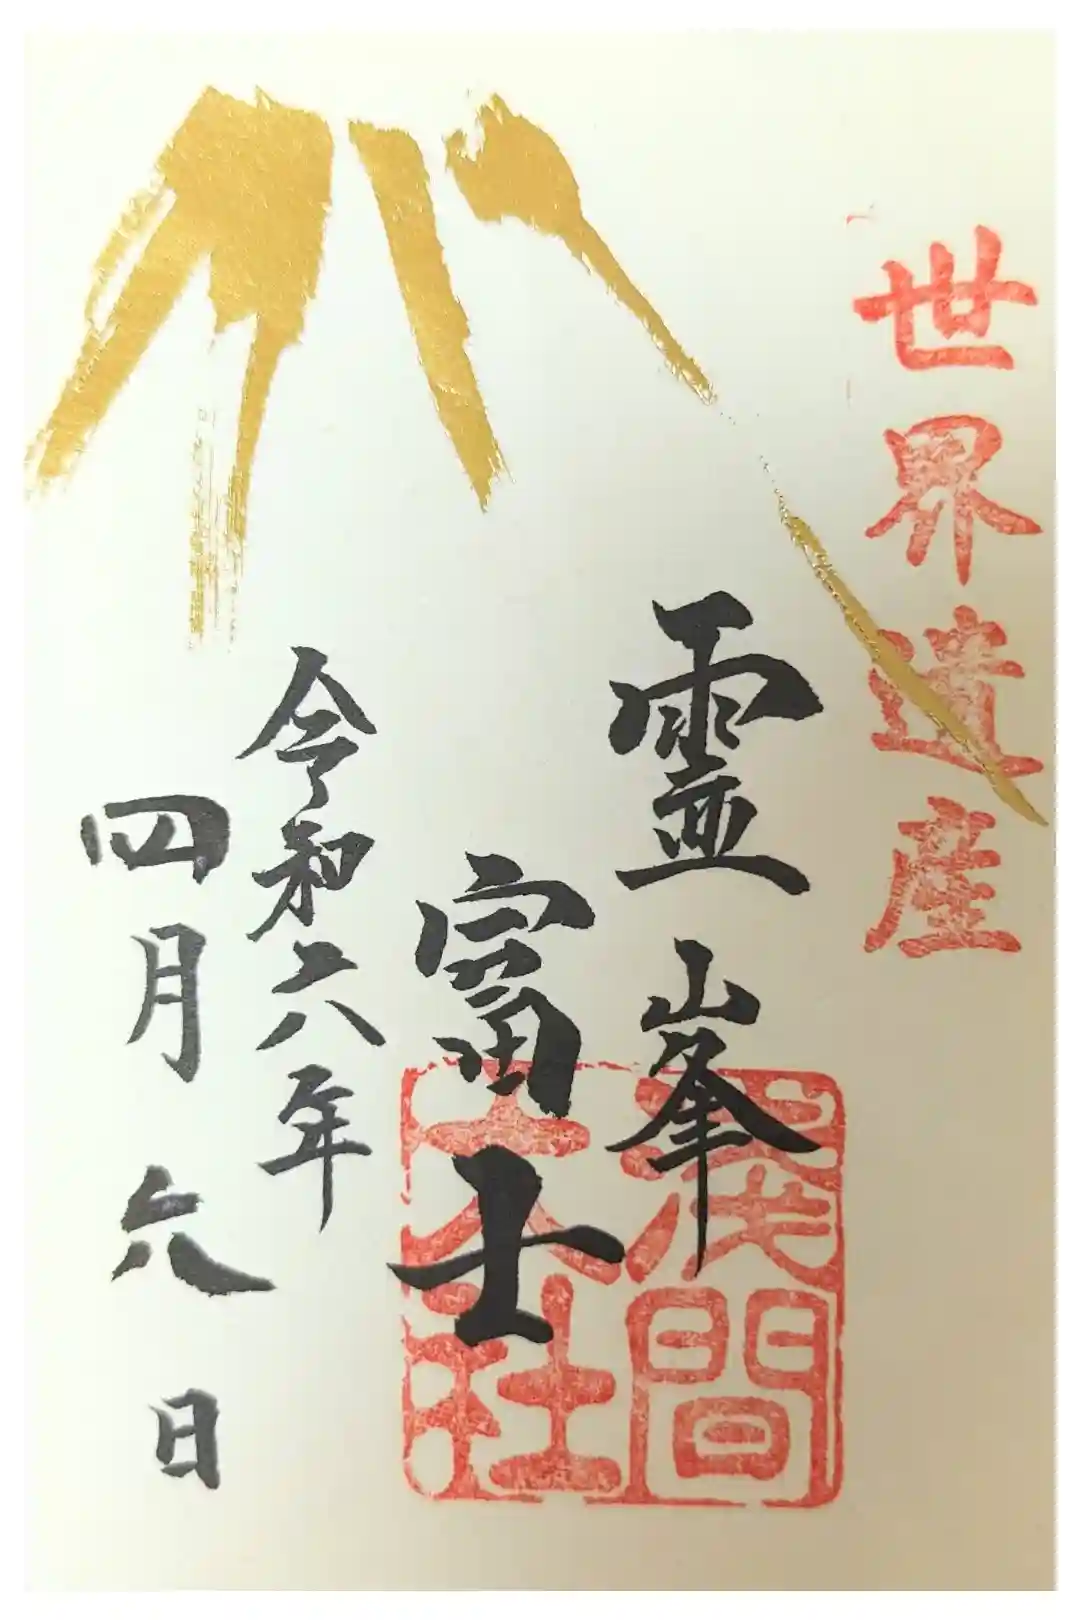 世界遺産
霊峯
富士
令和六年
四月六日
浅間
大社